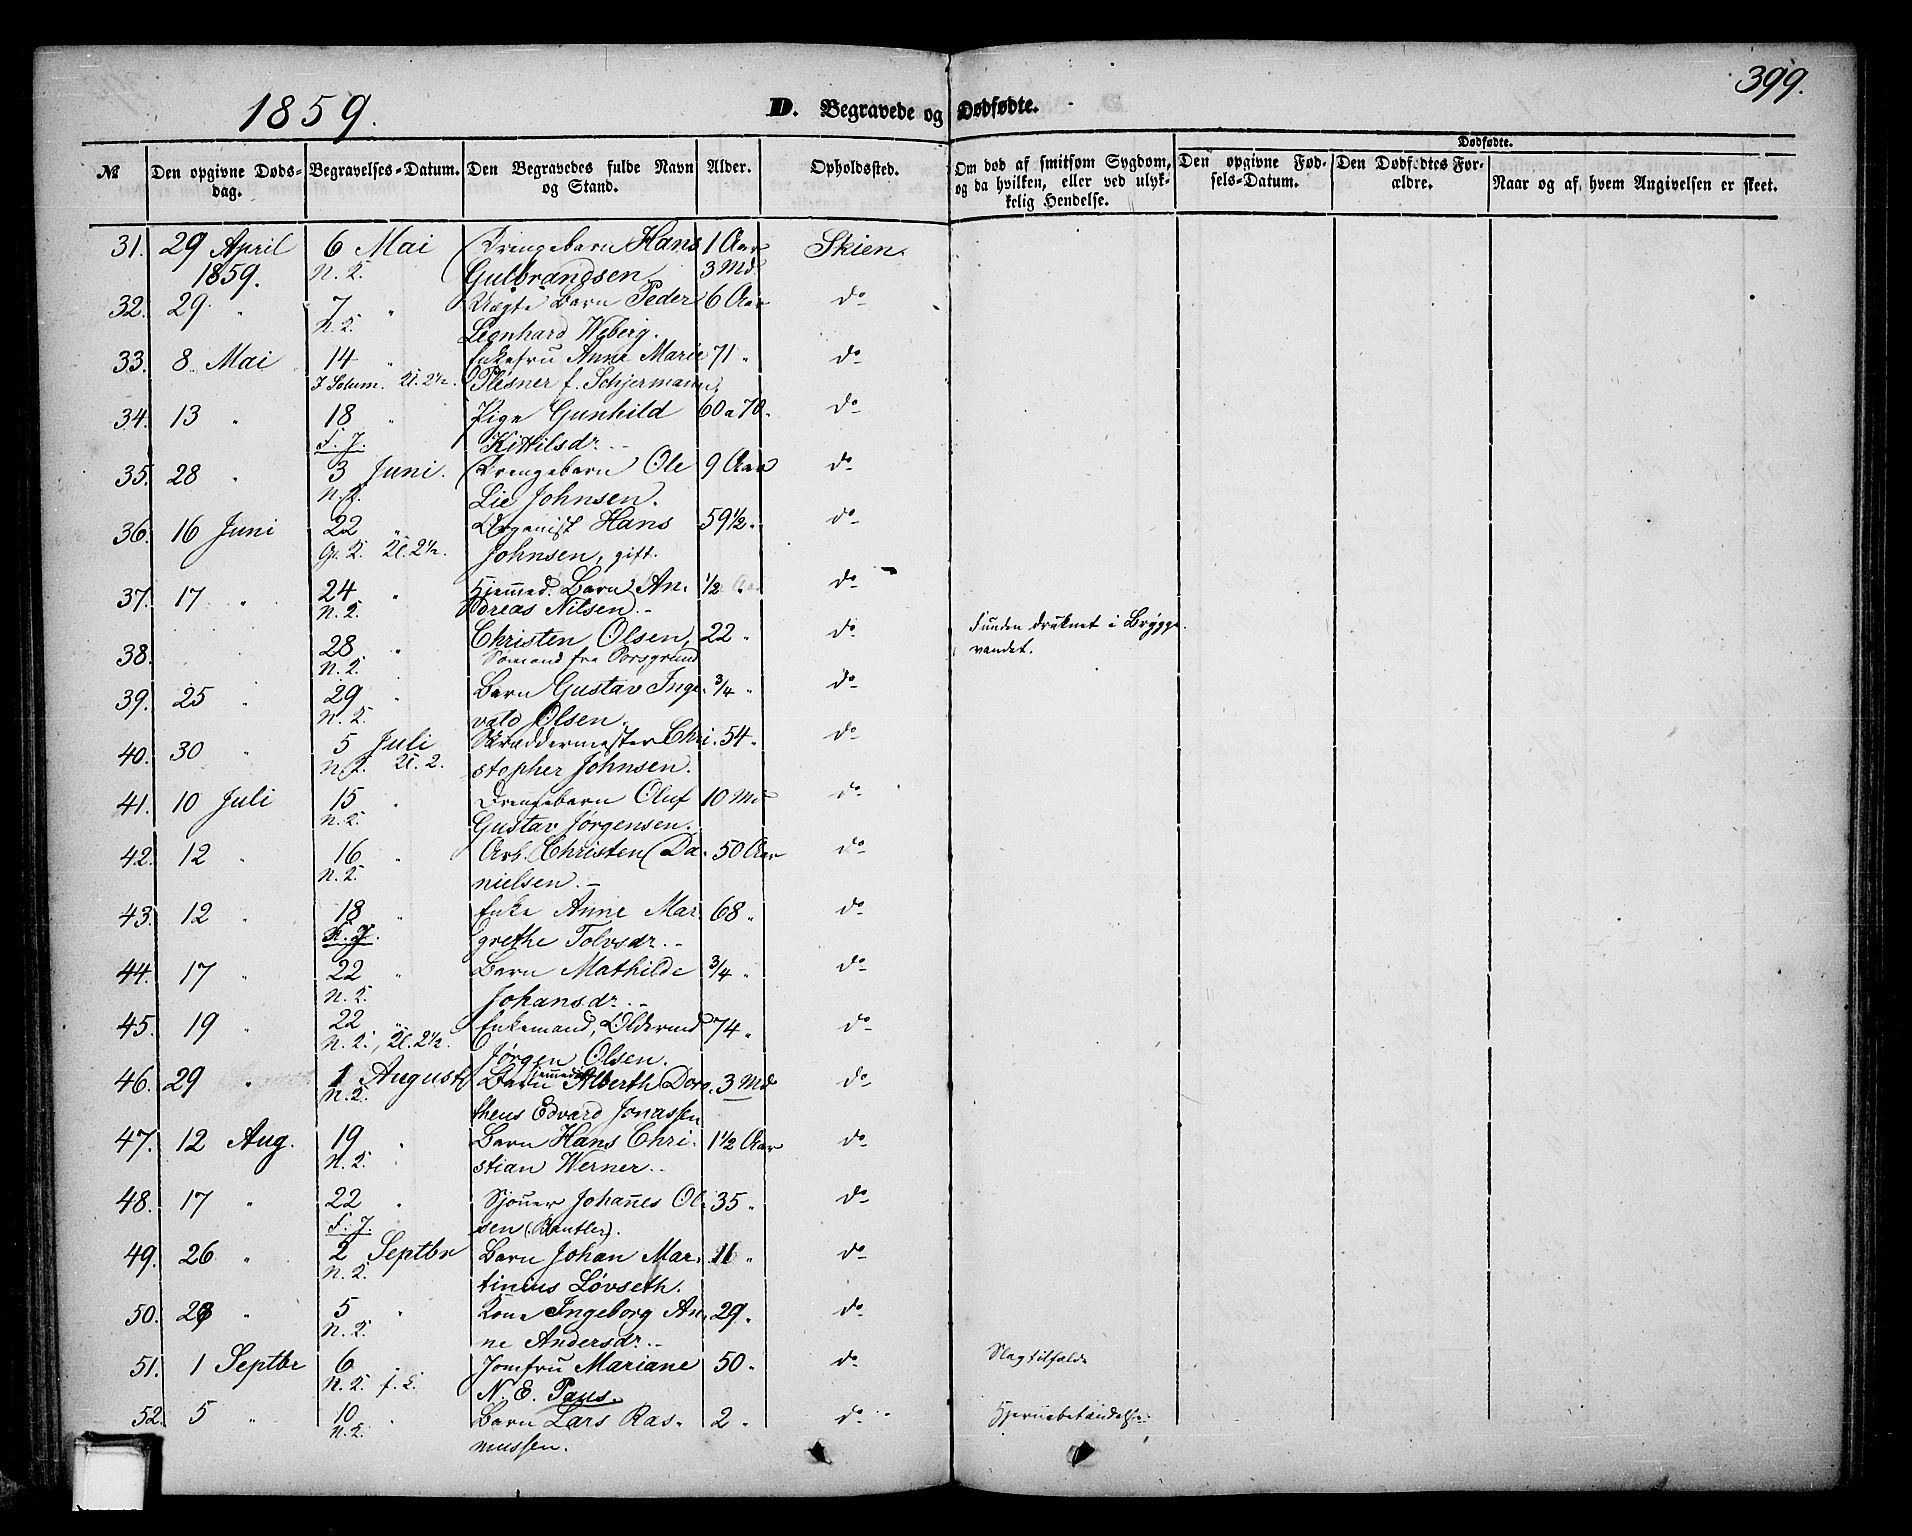 399.
1859.
D. Begravede og Dødfødte.
Dødfødte.
№ Den opgivne Døds- Begravelses-Datum. Den Begravedes fulde Navn Alder. Opholdssted. Om død af smitsom Sygdom, Den opgivne Fød- Den Dødfødtes For- Naar og af hvem Angivelsen er skeet.
dag. og Stand. og da hvilken, eller ved ulyk- sels-Datum. ældre.
kelig Hendelse.
31. 29 April 6 Mai Drengebarn Hans 1 Aar Skien
1859. N. K. Gulbrandsen 3 Md
32. 29 " 7 " Uægte Barn Peder 6 Aar do
N. K. Leonhard Wyberg.
33. 8 Mai 14 " Enkefru Anne Marie 71 " do
I Solum. Kl. 2½. Plesner f. Schjermann
34. 13 " 18 " Pige Gunhild 60 a 70. do
F. J. Kittilsdr.
35. 28 " 3 Juni. Drengebarn Ole 9 Aar do
N. K. Lie Johnsen.
36. 16 Juni 22 " Organist Hans 59½. do
Gr. K. Kl. 2½. Johnsen, gift.
37. 17 " 24 " Hjemmed. Barn An- ½ Aar do
N. K. dreas Nilsen.
38. 28 " Christen Olsen, 22 " do Funden druknet i Brygge-
N. K. Sømand fra Porsgrund vandet.
39. 25 " 29 " Barn Gustav Inge- ¾ " do
N. K. vald Olsen.
40. 30 " 5 Juli Skræddermester Chri- 54 " do
N. K. Kl. 2. stopher Johnsen.
41. 10 Juli 15 " Drengebarn Oluf 10 Md do
N. K. Gustav Jørgensen.
42. 12 " 16 " Arb. Christen Da- 50 Aar do
N. K. nielsen.
43. 12 " 18 " Enke Anne Mar- 68 " do
F. J. grethe Tolvsdr.
44. 17 " 22 " Barn Mathilde ¾ " do
N. K. Johansdr.
45. 19 " 22 " Enkemand, Oldermd 74 " do
N. K., Kl. 2½. Jørgen Olsen.
46. 29 " 1 August Barn hjemmedøbt Alberth Doro- 3 Md do
N. K. theus Edvard Jonassen
47. 12 Aug. 19 " Barn Hans Chri- 1½ Aar do
N. K. stian Werner.
48. 17 " 22 " Sjouer Johannes Ol- 35 " do
F. J. sen (Bantler).
49. 26 " 2 Septbr Barn Johan Mar- 11 " do
N. K. tinius Løvseth.
50. 28 " 5 " Kone Ingeborg An- 29 " do
N. K. ne Andersdr.
51. 1 Septbr 6 " Jomfru Mariane 50 " do Slagtilfælde
N. K. f. K. N. E. Paus.
52. 5 " 10 " Barn Lars Ras- 2 " do Hjernebetændelse
N. K. mussen.